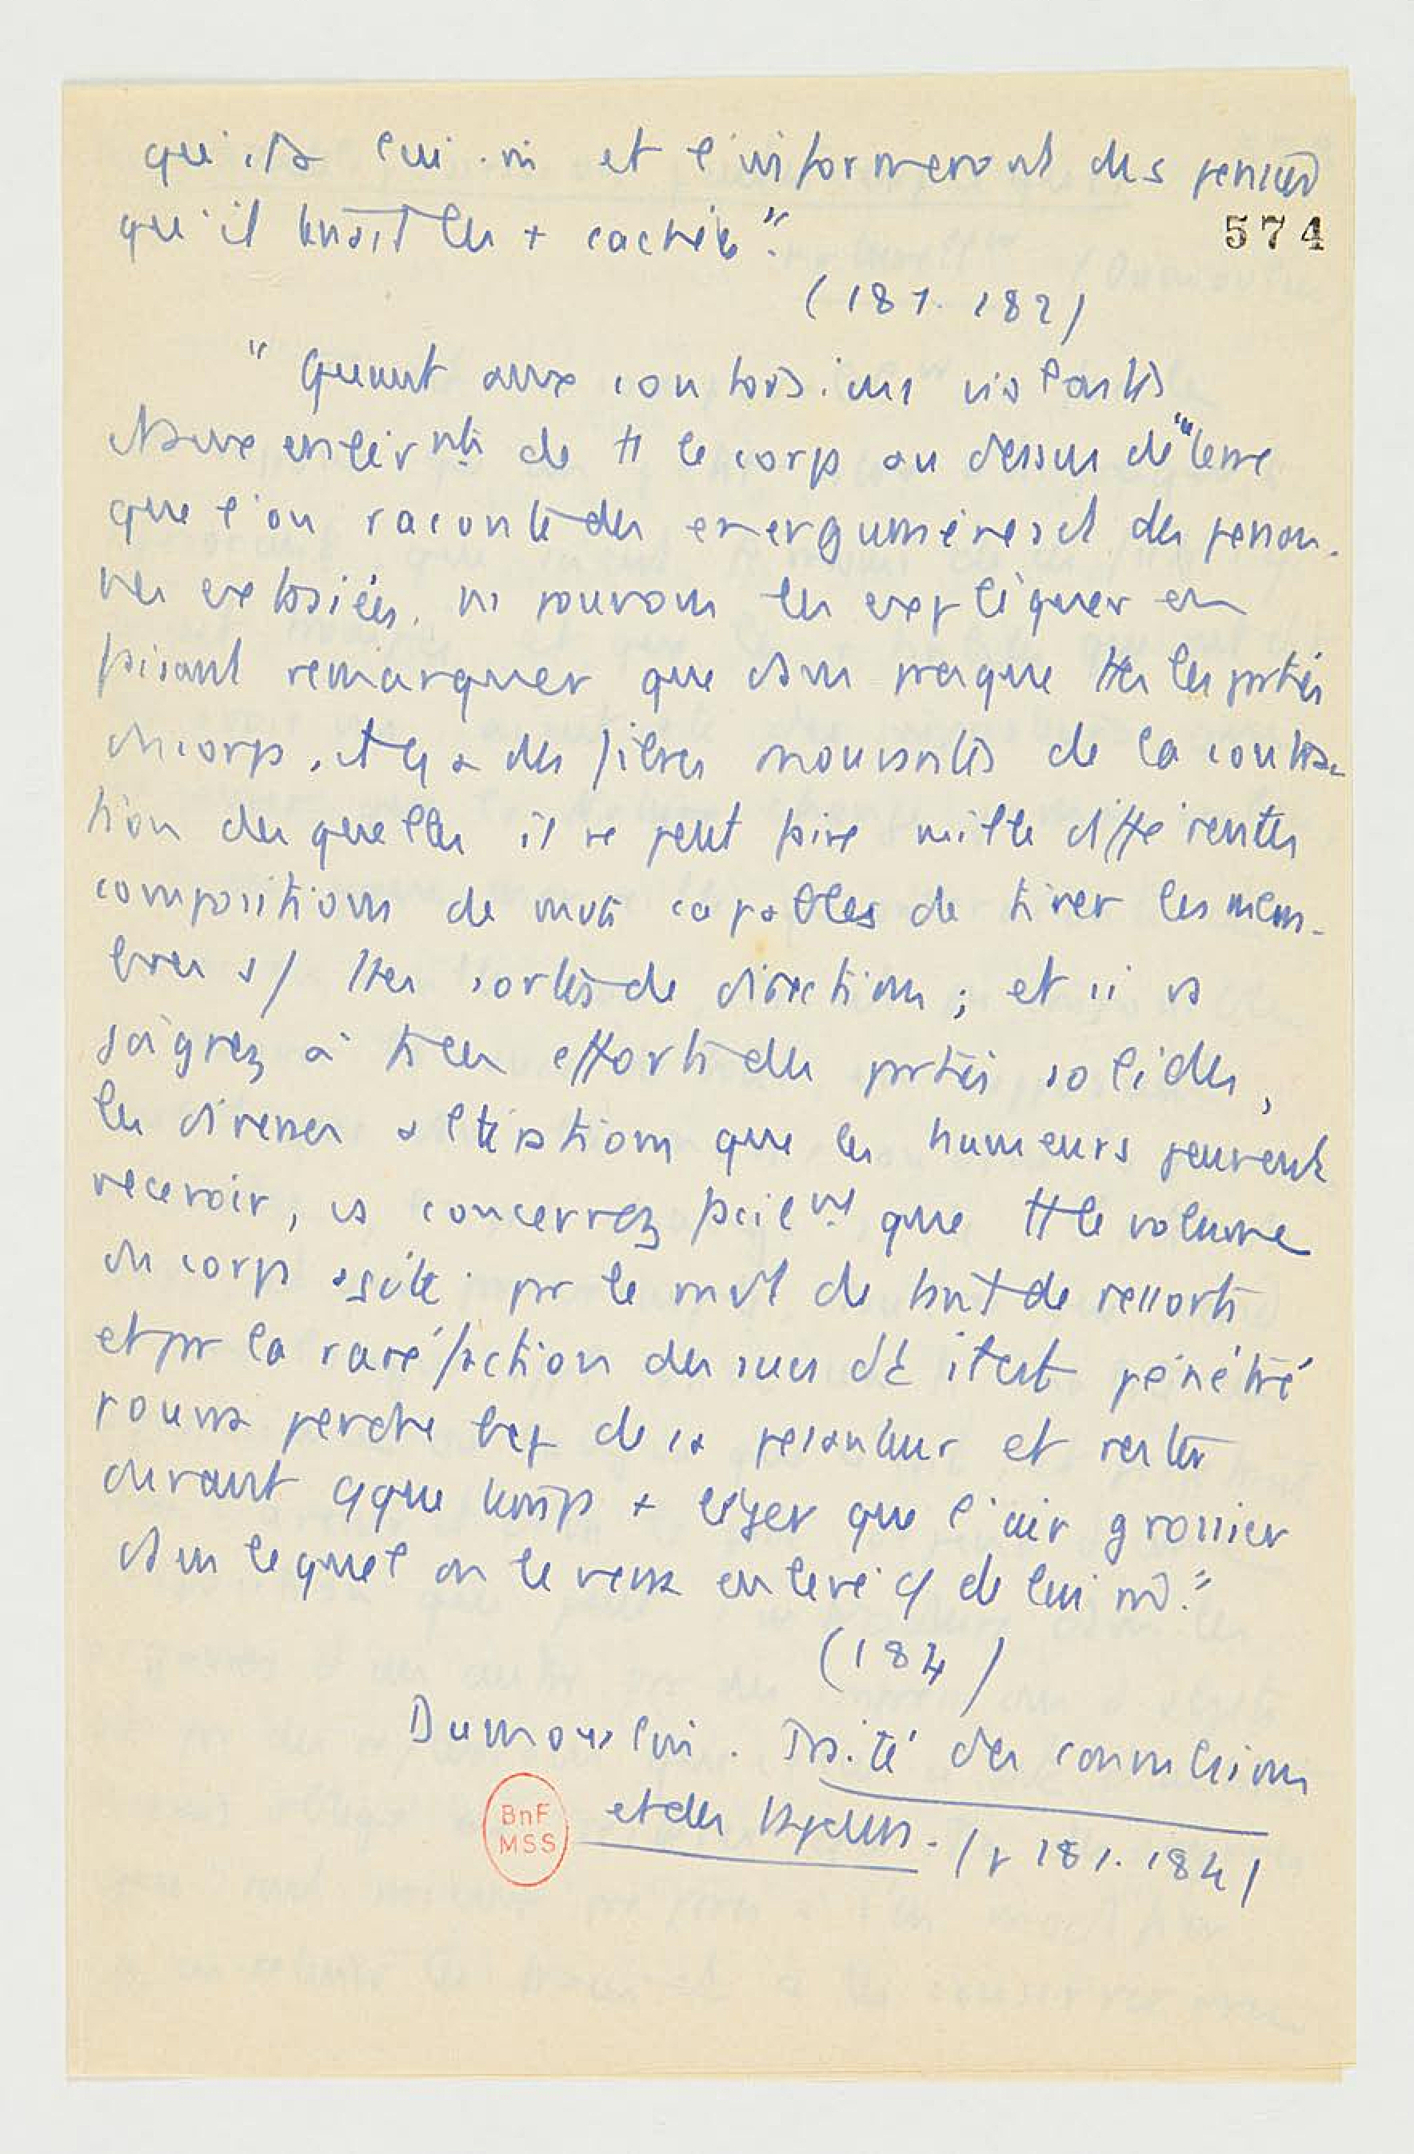 qu'ils lui-m̄ et l'informeront des pensées
qu'il tenait les + cachées".
574
(181-182)
"Quant aux contorsions violentes
de tt le corps au dessus de terre
que l'on raconte des energumènes et des person-
nes extasiées, ns pouvons les expliquer en
faisant remarquer que dans presque ttes les pties
du corps, il y a des fibres mouvantes de la contrac-
tion desquelles il se peut faire mille différentes
compositions de mvts capables de tirer les mem-
bres s/ ttes sortes de directions ; et si vs
joignez à ts ces efforts des pties solides,
les diverses altérations que les humeurs peuvent
recevoir, vs concevrez facilmt que tt le volume
du corps agité pr le mvt de tant de ressorts
et pr la raréfaction des sucs dt il est pénétré
pourra perdre bcp de sa pesanteur et rester
durant qque temps + léger que l'air grossier
dans lequel on le verra enlevé cô de lui m̄."
(184)
Dumoulin. Traité des convulsions
et des vapeurs. (p 181-184)
BnF
MSS